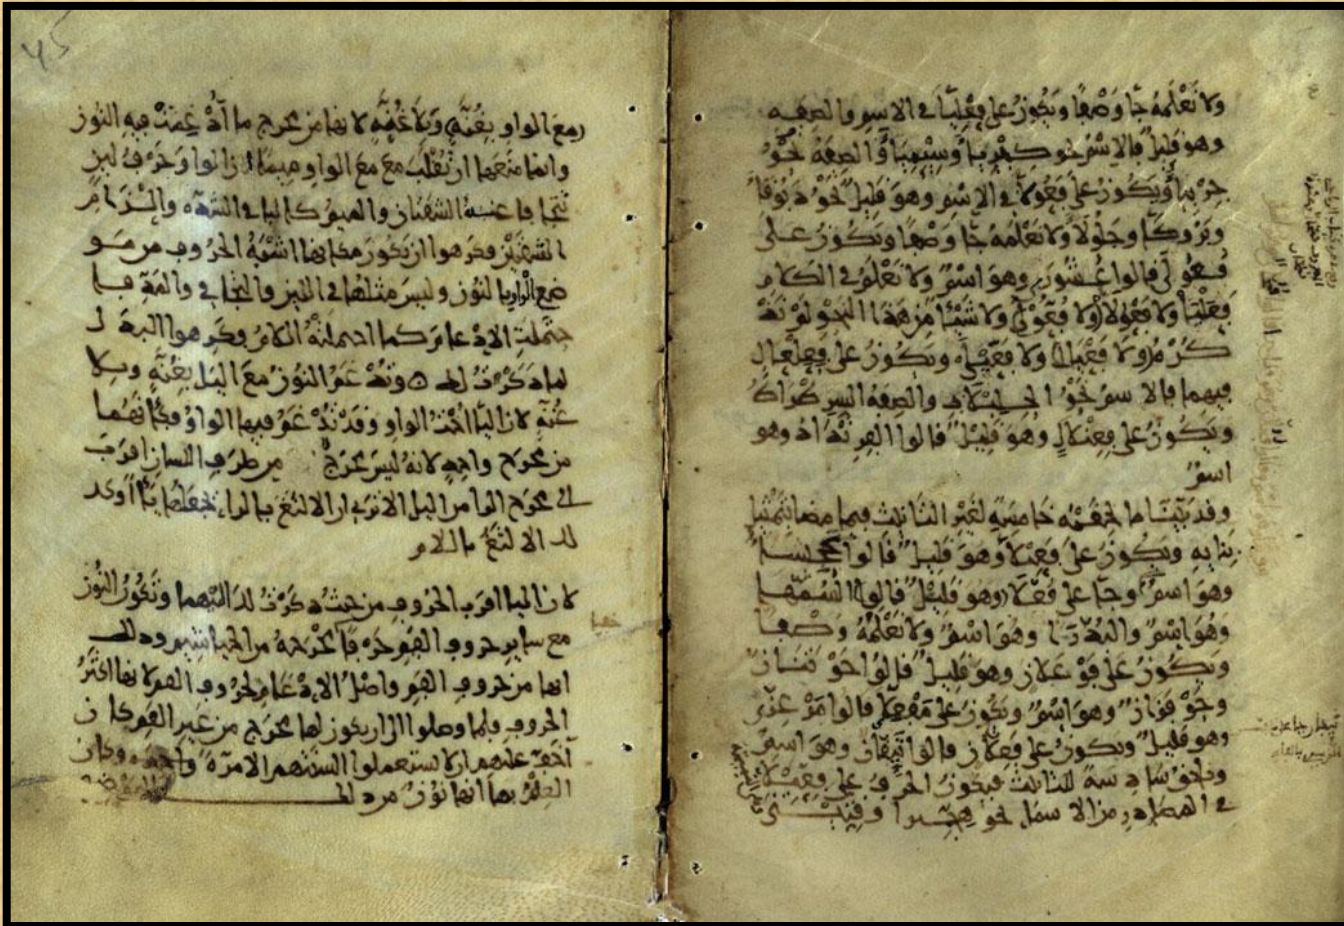 ولا نعلمه جا وصفا ويكون على فعليا في الاسم والصفه
وهو قليل فالاسم نحو كبريا وسيميا والصفة نحو
جربيا ويكون على فعولا في الاسم وهو قليل نحو دبوقا
وبروكا وجلولا ولا نعلمه جا وصفا ويكون على
فعولى قالوا عشورى وهو اسم ولا نعلم في الكلام
فعليا ولا فعولا ولا فعولى ولا شيئا من هذا النحو لم نذ
كره ولا فعيلى ويكون على فعلعال
فيهما فالاسم نحو الحلبلاب والصفه السرطراط
ويكون على فعنلال وهو قليل قالوا الفرنداد وهو
اسم
وقد بينا ما لحقته خامسة لغير التانيث فيما مضا بتمثيل
بنايه ويكون على فعنلا وهو قليل قالوا
وهو اسم وجا على فعلا وهو قليل قالوا السمها
وهو اسم والبدرا وهو اسم ولا نعلمه وصفا
ويكون على فوعلان وهو قليل قالوا حوتنان
وحوفزان وهو اسم ويكون على مفعلا قالوا مرعزى
وهو قليل ويكون على فعلان قالوا تيفان وهو اسم
وتلحق سادسة للتانيث فيكون الحرف على فعيلى
في المصادر من الاسما نحو هجيرا وقتيتى
45
مع الواو بغنة وبلا غنة لانها من مخرج ما ادغمت فيه النون
وانما منعها ان تقلب مع الواو ميما ان الواو حرف لين
تتجافا عنه الشفتان والميم كالبا في الشده والزام
الشفتين فكرهوا ان يكون مكانها اشبه الحروف من مو
ضع الواو بالنون وليس مثلها في اللين والتجافي والمد فا
حتملت الادغام كما احتملته اللام وكرهوا البدل
لما ذكرت لك وتدغم النون مع اليا بغنة وبلا
غنة لان اليا اخت الواو وقد تدغم فيها الواو فكانهما
من مخرج واحد لانه ليس مخرج من طرف اللسان اقرب
الى مخرج الرا من اليا الا ترى ان الالثغ بالرا يجعلها يا وكذ
لك الالثغ باللام
لان اليا اقرب الحروف من حيث ذكرت لك اليهما وتكون النون
مع ساير حروف الفم حرفا مخرجه من الخياشيم وذلك
انها من حروف الفم واصل الادغام لحروف الفم لانها اكثر
الحروف فلما وصلوا الى ان يكون لها مخرج من غير الفم كان
اخف عليهم ان لا يستعملوا السنتهم الا مرة واحدة وكان
العلم بها انها نون من ذلك